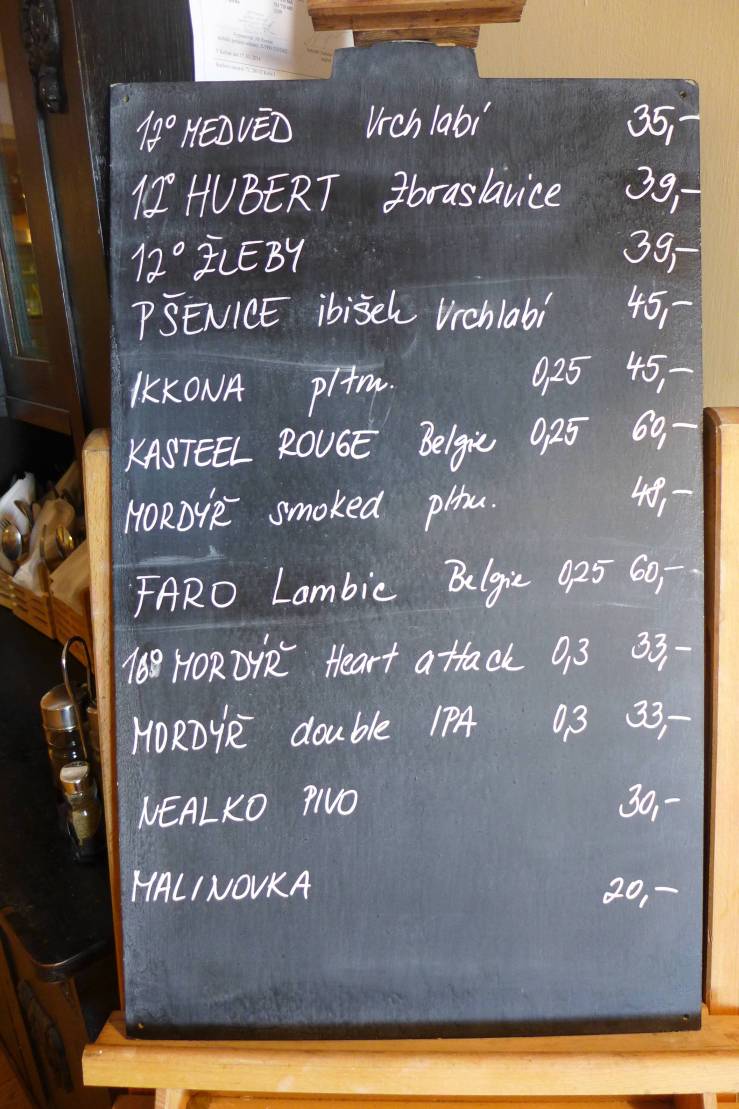 12° MEDVĚD Vrchlabí 35,-
12° HUBERT Zbraslavice 39,-
12° ŽLEBY 39,-
PŠENICE ibišek Vrchlabí 45,-
IKKONA pltm. 0,25 45,-
KASTEEL ROUGE Belgie 0,25 60,-
MORDÝŘ smoked pltm. 48,-
FARO Lambic Belgie 0,25 60,-
16° MORDÝŘ Heart attack 0,3 33,-
MORDÝŘ double IPA 0,3 33,-
NEALKO PIVO 30,-
MALINOVKA 20,-